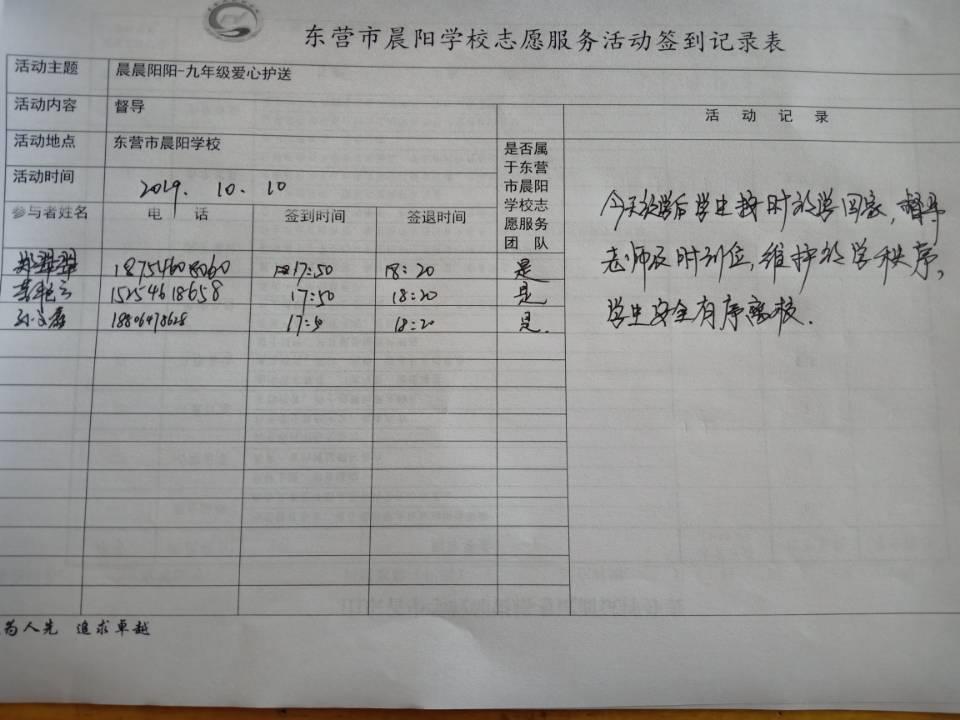 东营市晨阳学校志愿服务活动签到记录表
活动主题 晨晨阳阳-九年级爱心护送
活动内容 督导
活动地点 东营市晨阳学校
活动时间 2019. 10. 10
是否属于东营市晨阳学校志愿服务团队
活 动 记 录
参与者姓名 电 话 签到时间 签退时间
17:50 18:20 是
15254618658 17:50 18:20 是
18806478628 18:20 是.
今天放学后学生按时放学回家,督导
老师及时到位,维护放学秩序,
学生安全有序离校.
为人先 追求卓越